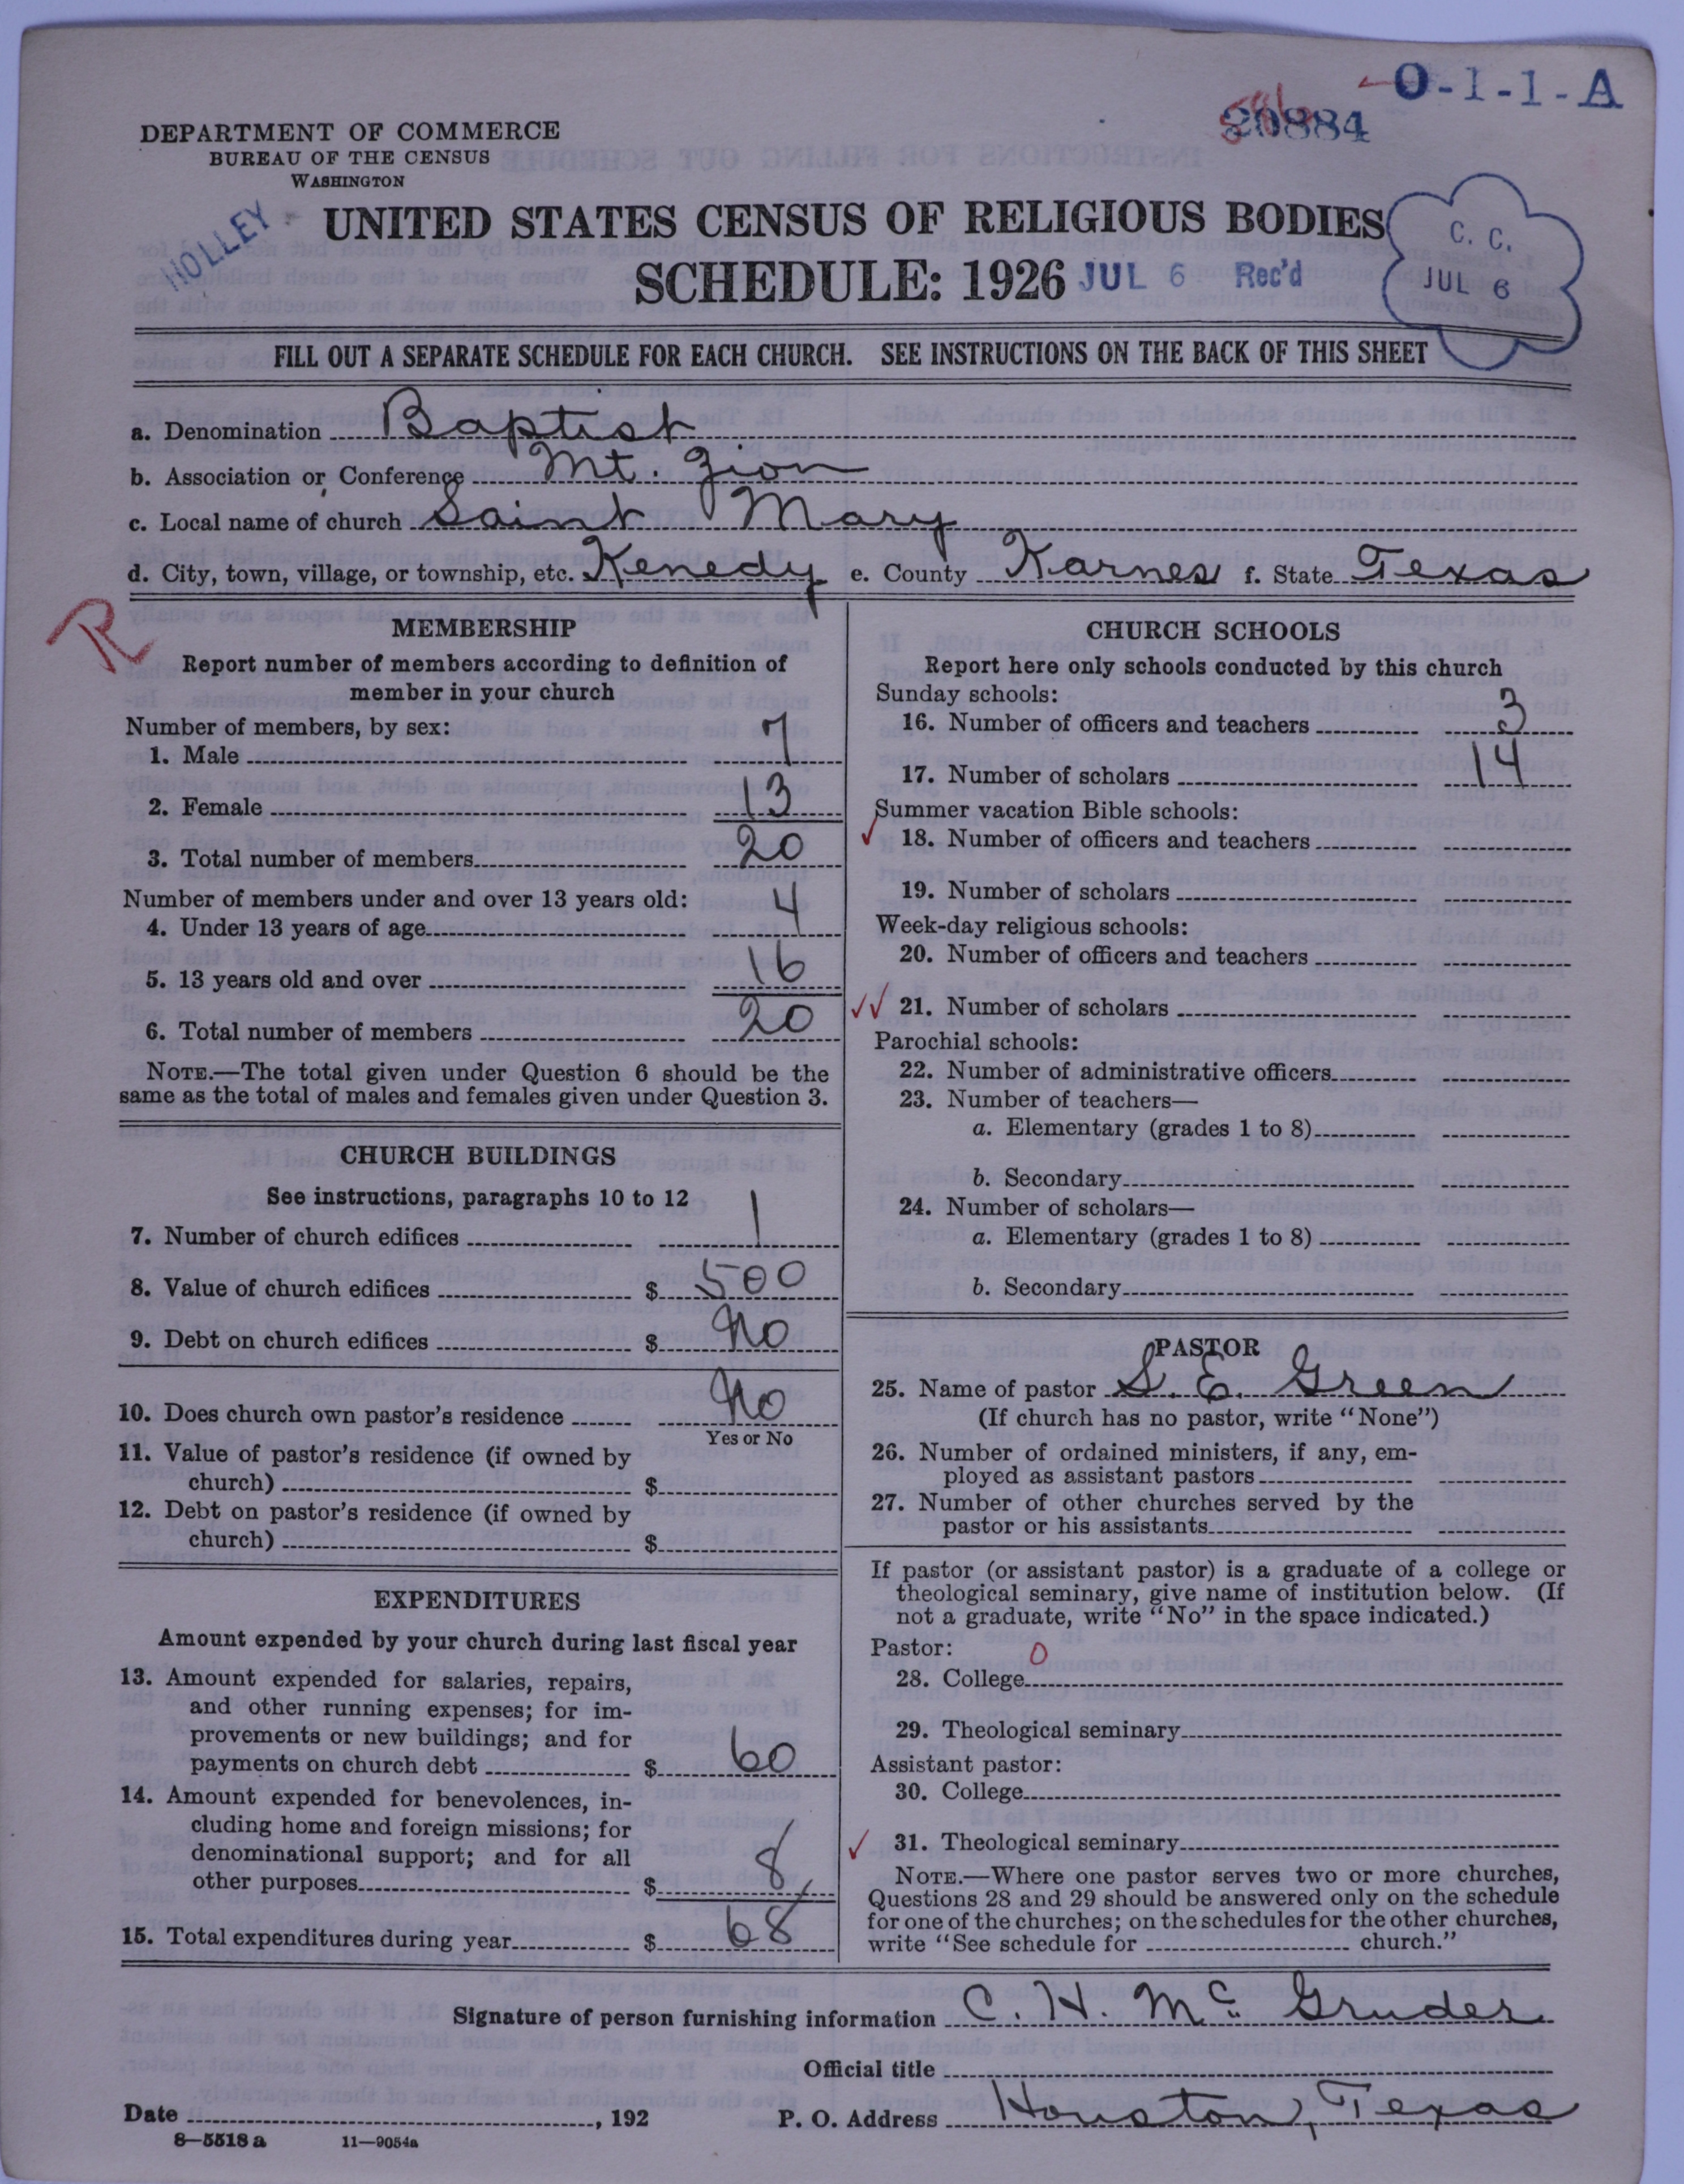 O-1-1-A
20884
DEPARTMENT OF COMMERCE
BUREAU OF THE CENSUS
WASHINGTON
HOLLEY
UNITED STATES CENSUS OF RELIGIOUS BODIES
SCHEDULE: 1926 JUL 6 Rec'd
C. C.
JUL 6
FILL OUT A SEPARATE SCHEDULE FOR EACH CHURCH. SEE INSTRUCTIONS ON THE BACK OF THIS SHEET
a. Denomination Baptist
b. Association or Conference Mt. Zion
c. Local name of church Saint Mary
d. City, town, village, or township, etc. Kenedy e. County Karnes f. State Texas
R
MEMBERSHIP
Report number of members according to definition of
member in your church
Number of members, by sex:
1. Male 7
2. Female 13
3. Total number of members 20
Number of members under and over 13 years old:
4. Under 13 years of age 4
5. 13 years old and over 16
6. Total number of members 20
NOTE.—The total given under Question 6 should be the
same as the total of males and females given under Question 3.
CHURCH BUILDINGS
See instructions, paragraphs 10 to 12
7. Number of church edifices 1
8. Value of church edifices $ 500
9. Debt on church edifices $ No
10. Does church own pastor's residence No
Yes or No
11. Value of pastor's residence (if owned by
church) $
12. Debt on pastor's residence (if owned by
church) $
EXPENDITURES
Amount expended by your church during last fiscal year
13. Amount expended for salaries, repairs,
and other running expenses; for im-
provements or new buildings; and for
payments on church debt $ 60
14. Amount expended for benevolences, in-
cluding home and foreign missions; for
denominational support; and for all
other purposes $ 8
15. Total expenditures during year $ 68
CHURCH SCHOOLS
Report here only schools conducted by this church
Sunday schools:
16. Number of officers and teachers 3
17. Number of scholars 14
Summer vacation Bible schools:
18. Number of officers and teachers
19. Number of scholars
Week-day religious schools:
20. Number of officers and teachers
21. Number of scholars
Parochial schools:
22. Number of administrative officers
23. Number of teachers—
a. Elementary (grades 1 to 8)
b. Secondary
24. Number of scholars—
a. Elementary (grades 1 to 8)
b. Secondary
PASTOR
25. Name of pastor S. E. Green
(If church has no pastor, write "None")
26. Number of ordained ministers, if any, em-
ployed as assistant pastors
27. Number of other churches served by the
pastor or his assistants
If pastor (or assistant pastor) is a graduate of a college or
theological seminary, give name of institution below. (If
not a graduate, write "No" in the space indicated.)
Pastor: 0
28. College
29. Theological seminary
Assistant pastor:
30. College
31. Theological seminary
NOTE.—Where one pastor serves two or more churches,
Questions 28 and 29 should be answered only on the schedule
for one of the churches; on the schedules for the other churches,
write "See schedule for church."
Signature of person furnishing information C. H. McGruder
Official title
Date , 192 P. O. Address Houston, Texas
8—5518 a 11—9054a